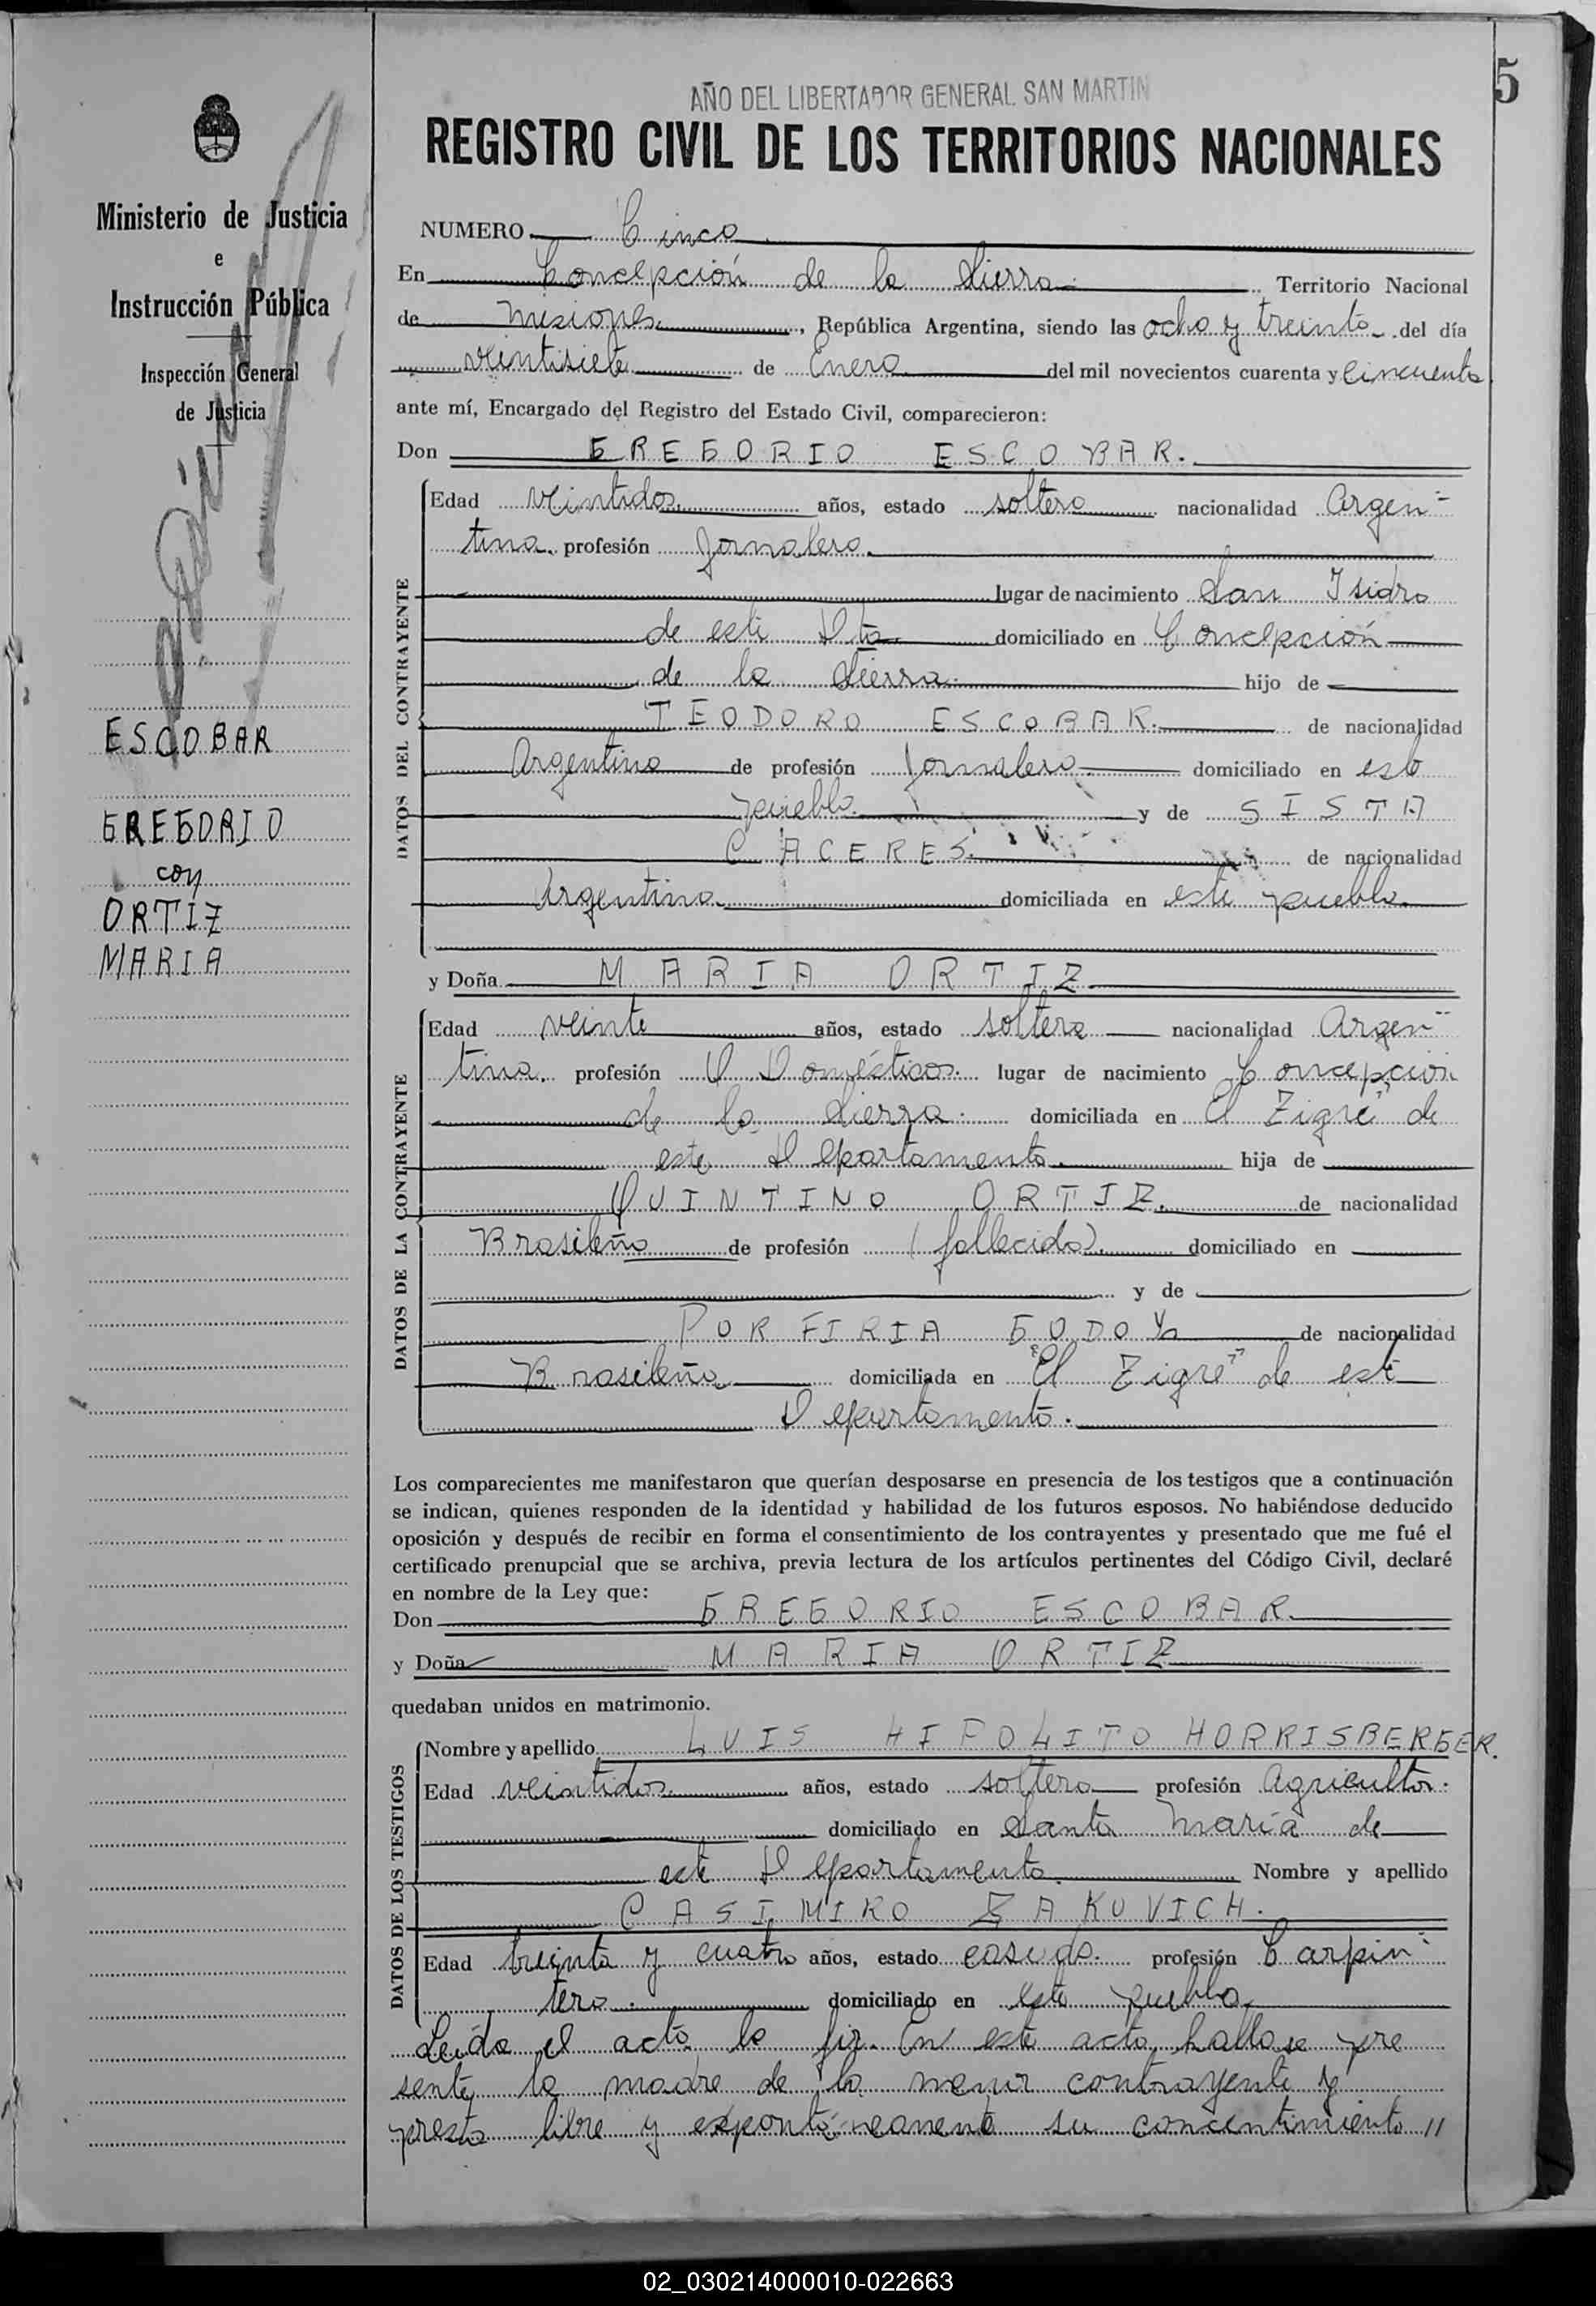 5
AÑO DEL LIBERTADOR GENERAL SAN MARTIN
REGISTRO CIVIL DE LOS TERRITORIOS NACIONALES
Ministerio de Justicia
e
Instrucción Pública
Inspección General
de Justicia
ESCOBAR
GREGORIO
con
ORTIZ
MARIA
NUMERO Cinco
En Concepción de la Sierra. Territorio Nacional
de Misiones, República Argentina, siendo las ocho y treinta del día
veintisiete de Enero del mil novecientos cuarenta y Cincuenta
ante mí, Encargado del Registro del Estado Civil, comparecieron:
Don GREGORIO ESCOBAR.
DATOS DEL CONTRAYENTE
Edad veintidos años, estado soltero nacionalidad Argen=
tina. profesión Jornalero.
lugar de nacimiento San Isidro
de este Dto. domiciliado en Concepción
de la Sierra. hijo de
TEODORO ESCOBAR. de nacionalidad
Argentino de profesión Jornalero. domiciliado en este
pueblo. y de SISTA
CACERES. de nacionalidad
Argentina. domiciliada en este pueblo.
y Doña MARIA ORTIZ
DATOS DE LA CONTRAYENTE
Edad veinte años, estado soltera nacionalidad Argen=
tina. profesión Q. Domésticos. lugar de nacimiento Concepción
de la Sierra. domiciliada en El Tigre" de
este Departamento. hija de
QUINTINO ORTIZ. de nacionalidad
Brasileño de profesión (fallecido). domiciliado en
y de
PORFIRIA GODOY de nacionalidad
Brasileña domiciliada en "El Tigre" de este
Departamento.
Los comparecientes me manifestaron que querían desposarse en presencia de los testigos que a continuación
se indican, quienes responden de la identidad y habilidad de los futuros esposos. No habiéndose deducido
oposición y después de recibir en forma el consentimiento de los contrayentes y presentado que me fué el
certificado prenupcial que se archiva, previa lectura de los artículos pertinentes del Código Civil, declaré
en nombre de la Ley que:
Don GREGORIO ESCOBAR.
y Doña MARIA ORTIZ
quedaban unidos en matrimonio.
DATOS DE LOS TESTIGOS
Nombre y apellido LUIS HIPOLITO HORRISBERGER.
Edad veintidos años, estado soltero profesión Agricultor.
domiciliado en Santa María de
este Departamento. Nombre y apellido
CASIMIRO ZAKUVICH.
Edad treinta y cuatro años, estado casado. profesión Carpin=
tero. domiciliado en este pueblo.
Leída el acta la fir. En este acto hallase pre
sente la madre de la menor contrayente y
presta libre y expontáneamente su concentimiento "
02_030214000010-022663